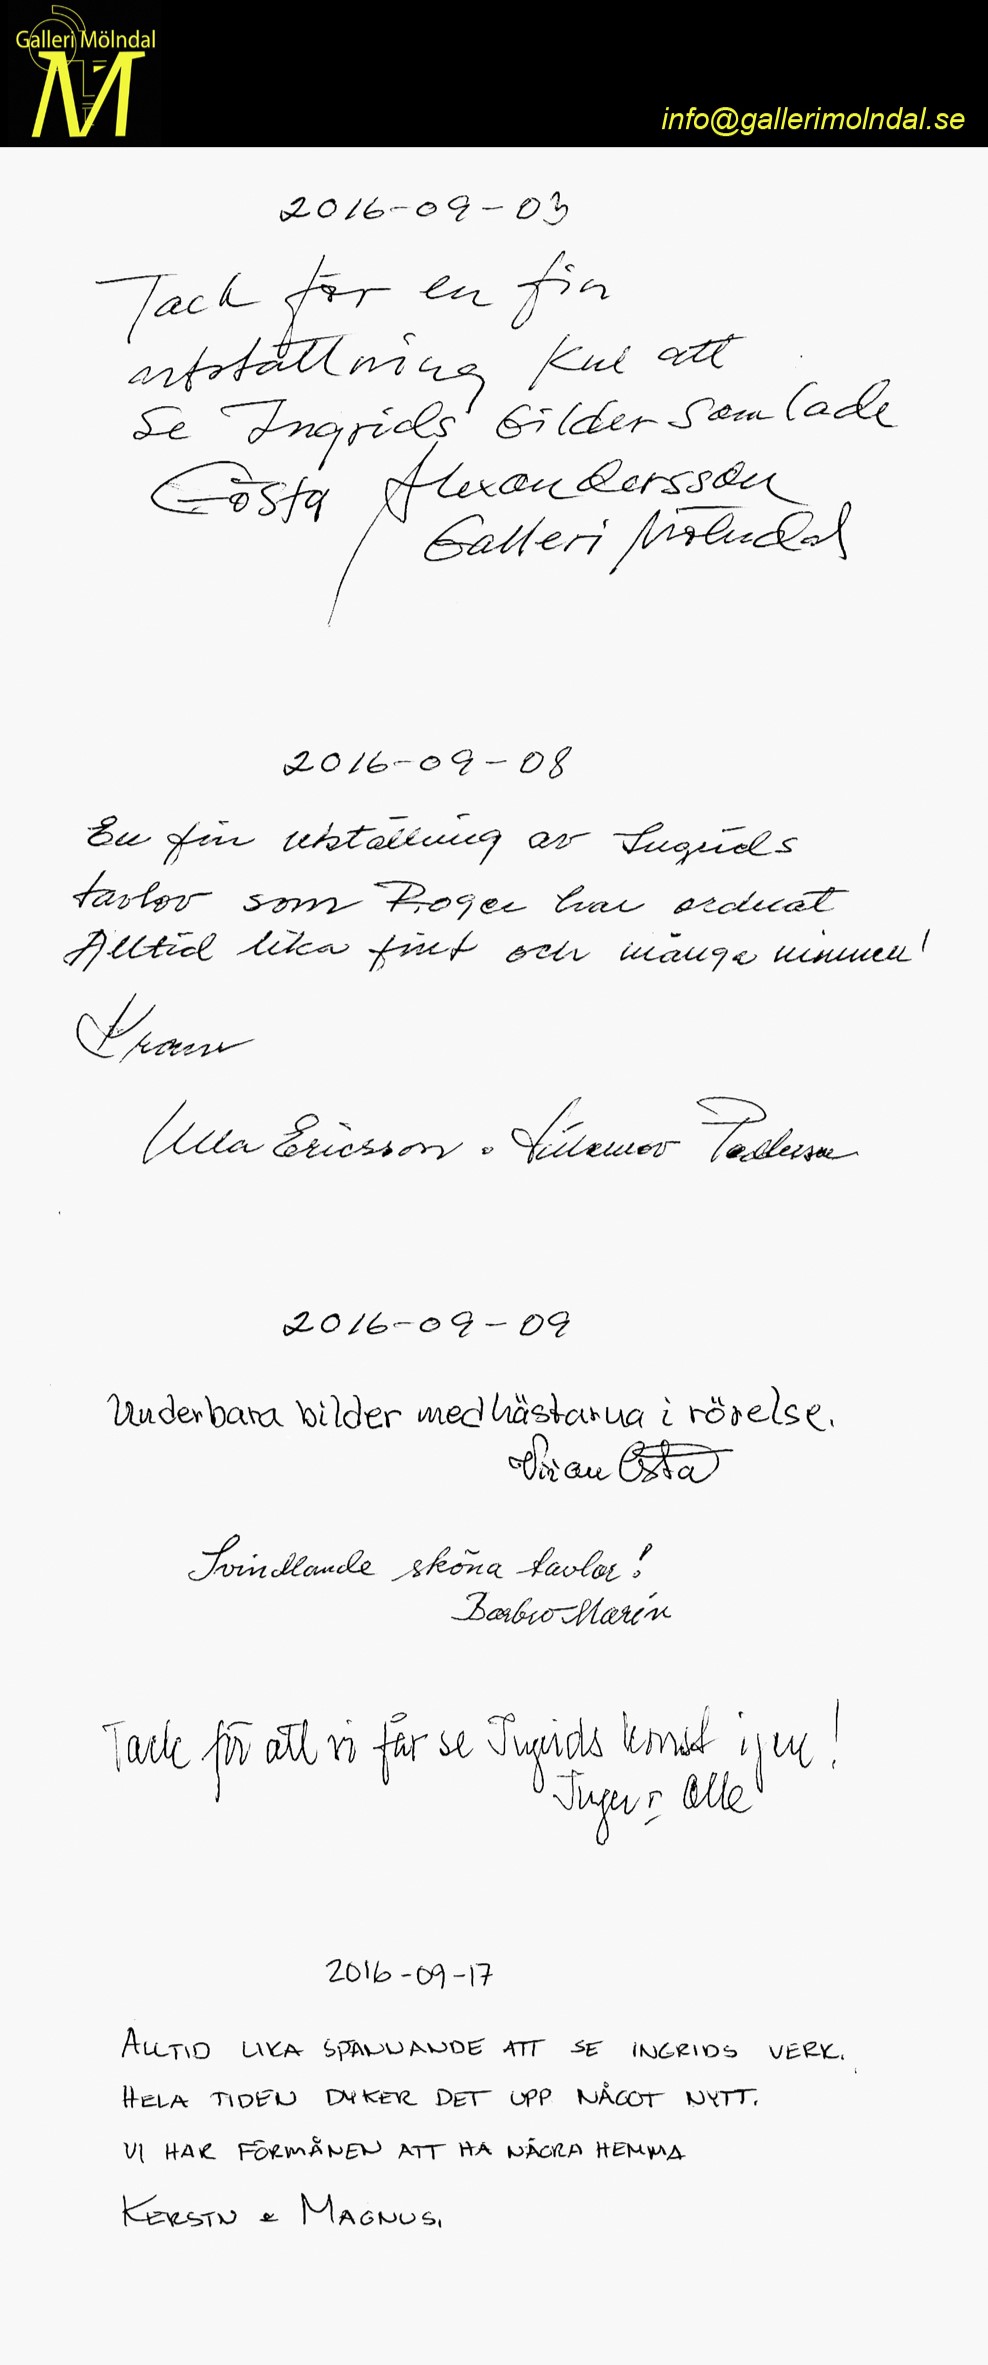 Galleri Mölndal
M
info@gallerimolndal.se
2016-09-03
Tack för en fin
utställning Kul att
se Ingrids bilder samlade
Gösta Alexandersson
Galleri Mölndal
2016-09-08
En fin utställning av Ingrids
tavlor som Roger har ordnat
Alltid lika fint och många minnen!
Kram
Ulla Ericsson o
2016-09-09
Underbara bilder med hästarna i rörelse.
Svindlande sköna tavlor!
Barbro Marén
Tack för att vi får se Ingrids konst igen!
Inger o Olle
2016-09-17
ALLTID LIKA SPÄNNANDE ATT SE INGRIDS VERK.
HELA TIDEN DYKER DET UPP NÅGOT NYTT.
VI HAR FÖRMÅNEN ATT HA NÅGRA HEMMA
KERSTN & MAGNUS.